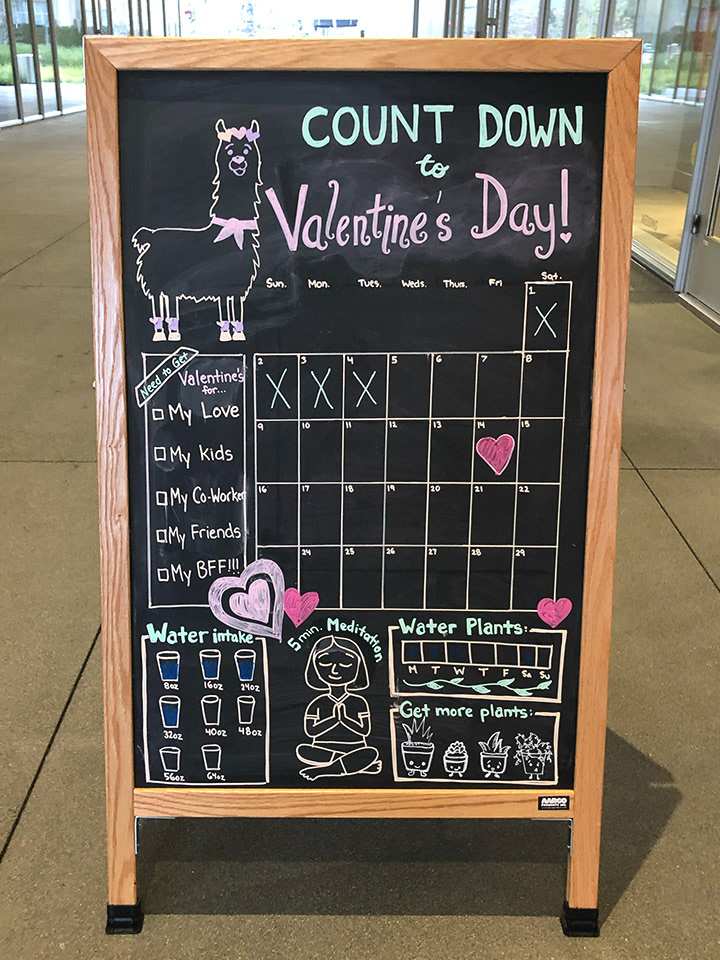 COUNT DOWN
to
Valentine's Day!
Sun. Mon. Tues. Weds. Thurs. Fri Sat.
1
X
2 3 4 5 6 7 8
X X X
9 10 11 12 13 14 15
16 17 18 19 20 21 22
24 25 26 27 28 29
Need to Get
Valentine's
for...
My Love
My kids
My Co-Worker
My Friends
My BFF!!!
Water intake
8oz 16oz 24oz
32oz 40oz 48oz
56oz 64oz
5 min. Meditation
Water Plants:
M T W T F Sa Su
Get more plants:
AARCO